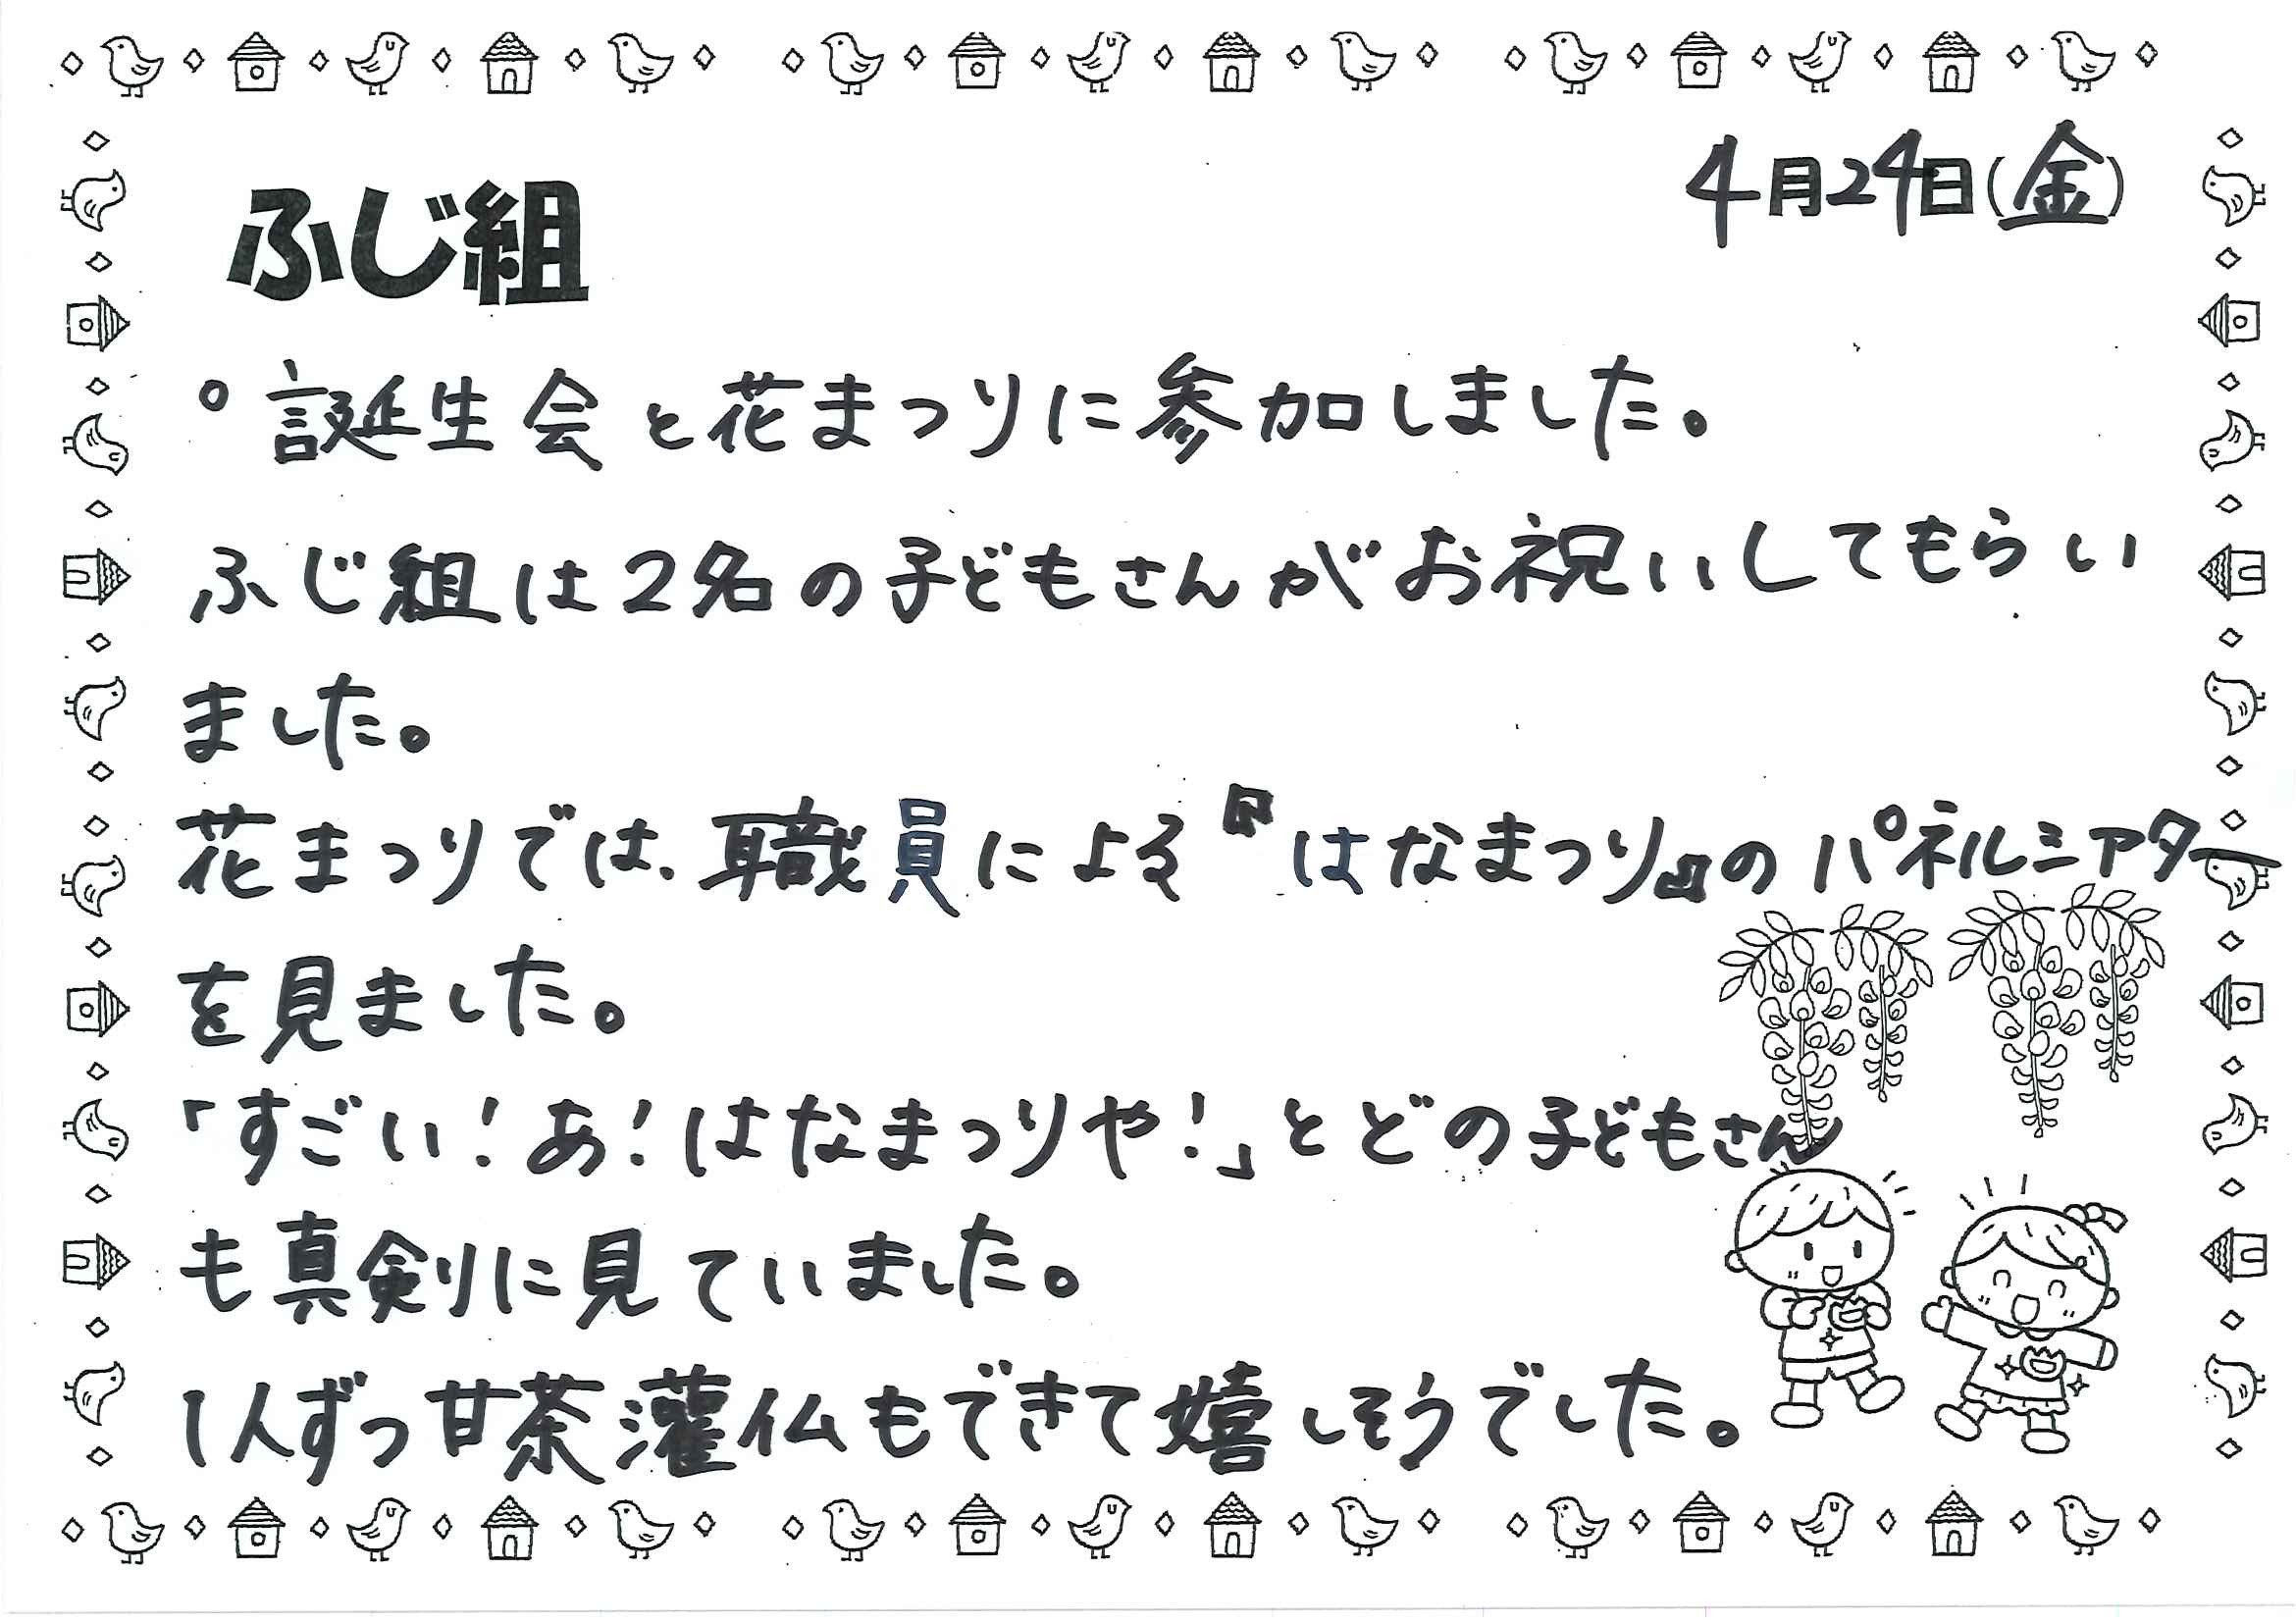 4月24日(金)
ふじ組
○ 誕生会と花まつりに参加しました。
ふじ組は2名の子どもさんがお祝いしてもらい
ました。
花まつりでは、職員による『はなまつり』のパネルシアター
を見ました。
「すごい!あ!はなまつりや!」とどの子どもさん
も真剣に見ていました。
1人ずつ甘茶灌仏もできて嬉しそうでした。